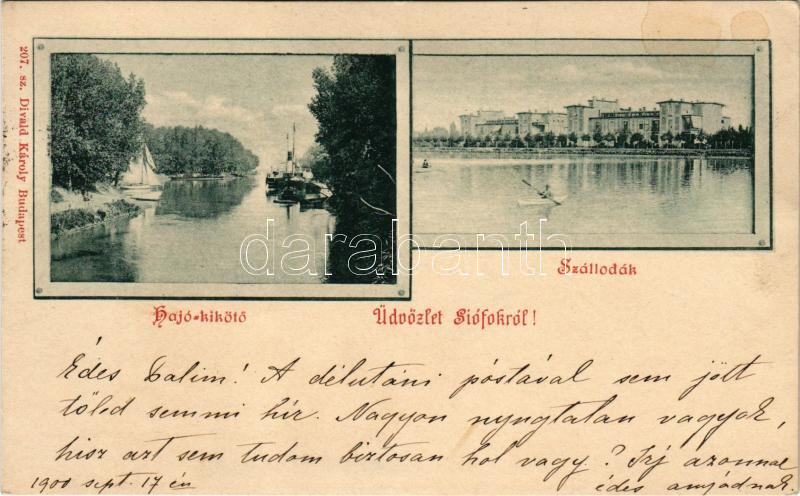 207. sz. Divald Károly Budapest
darabanth.com
Szállodák
Hajó-kikötő
Üdvözlet Siófokról!
Édes Dalim! A délutáni póstával sem jött
tőled semmi hír. Nagyon nyugtalan vagyok,
hisz azt sem tudom biztosan hol vagy? Irj azonnal
1900 sept. 17 én
édes anyádnak.